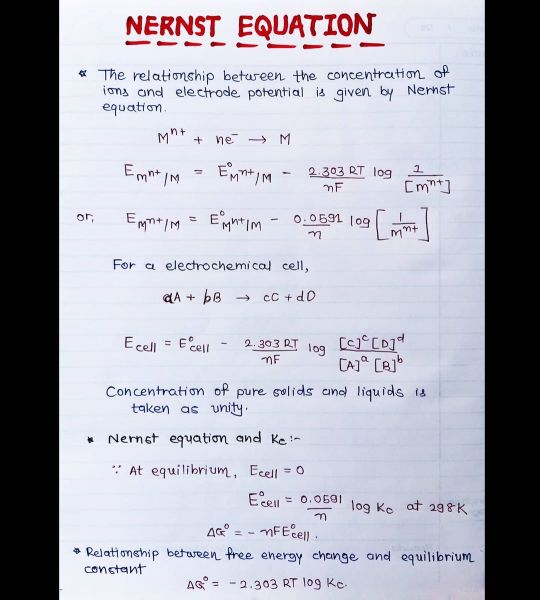 NERNST EQUATION
* The relationship between the concentration of
ions and electrode potential is given by Nernst
equation.
Mⁿ⁺ + ne⁻ → M
E Mⁿ⁺/M = E° Mⁿ⁺/M - 2.303 RT / nF log 1 / [Mⁿ⁺]
or, E Mⁿ⁺/M = E° Mⁿ⁺/M - 0.0591 / n log [1 / Mⁿ⁺]
For a electrochemical cell,
aA + bB → cC + dD
E cell = E° cell - 2.303 RT / nF log [C]ᶜ [D]ᵈ / [A]ᵃ [B]ᵇ
Concentration of pure solids and liquids is
taken as unity.
* Nernst equation and Kc :-
∵ At equilibrium, E cell = 0
E° cell = 0.0591 / n log Kc at 298K
ΔG° = - nFE° cell .
* Relationship between free energy change and equilibrium
constant
ΔG° = - 2.303 RT log Kc.